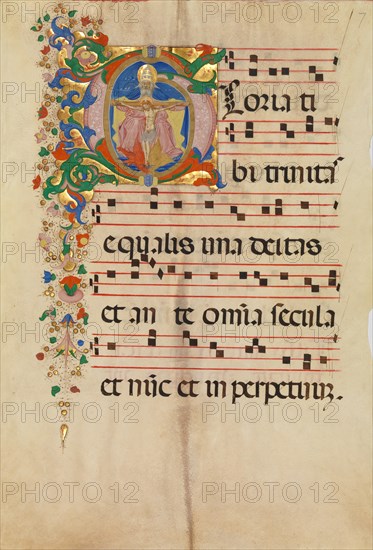 17
Gloria ti
bi trinitas
equalis una deitas
et an te om̄ia secula
et nūc et in perpetuum.
PHOTO 12